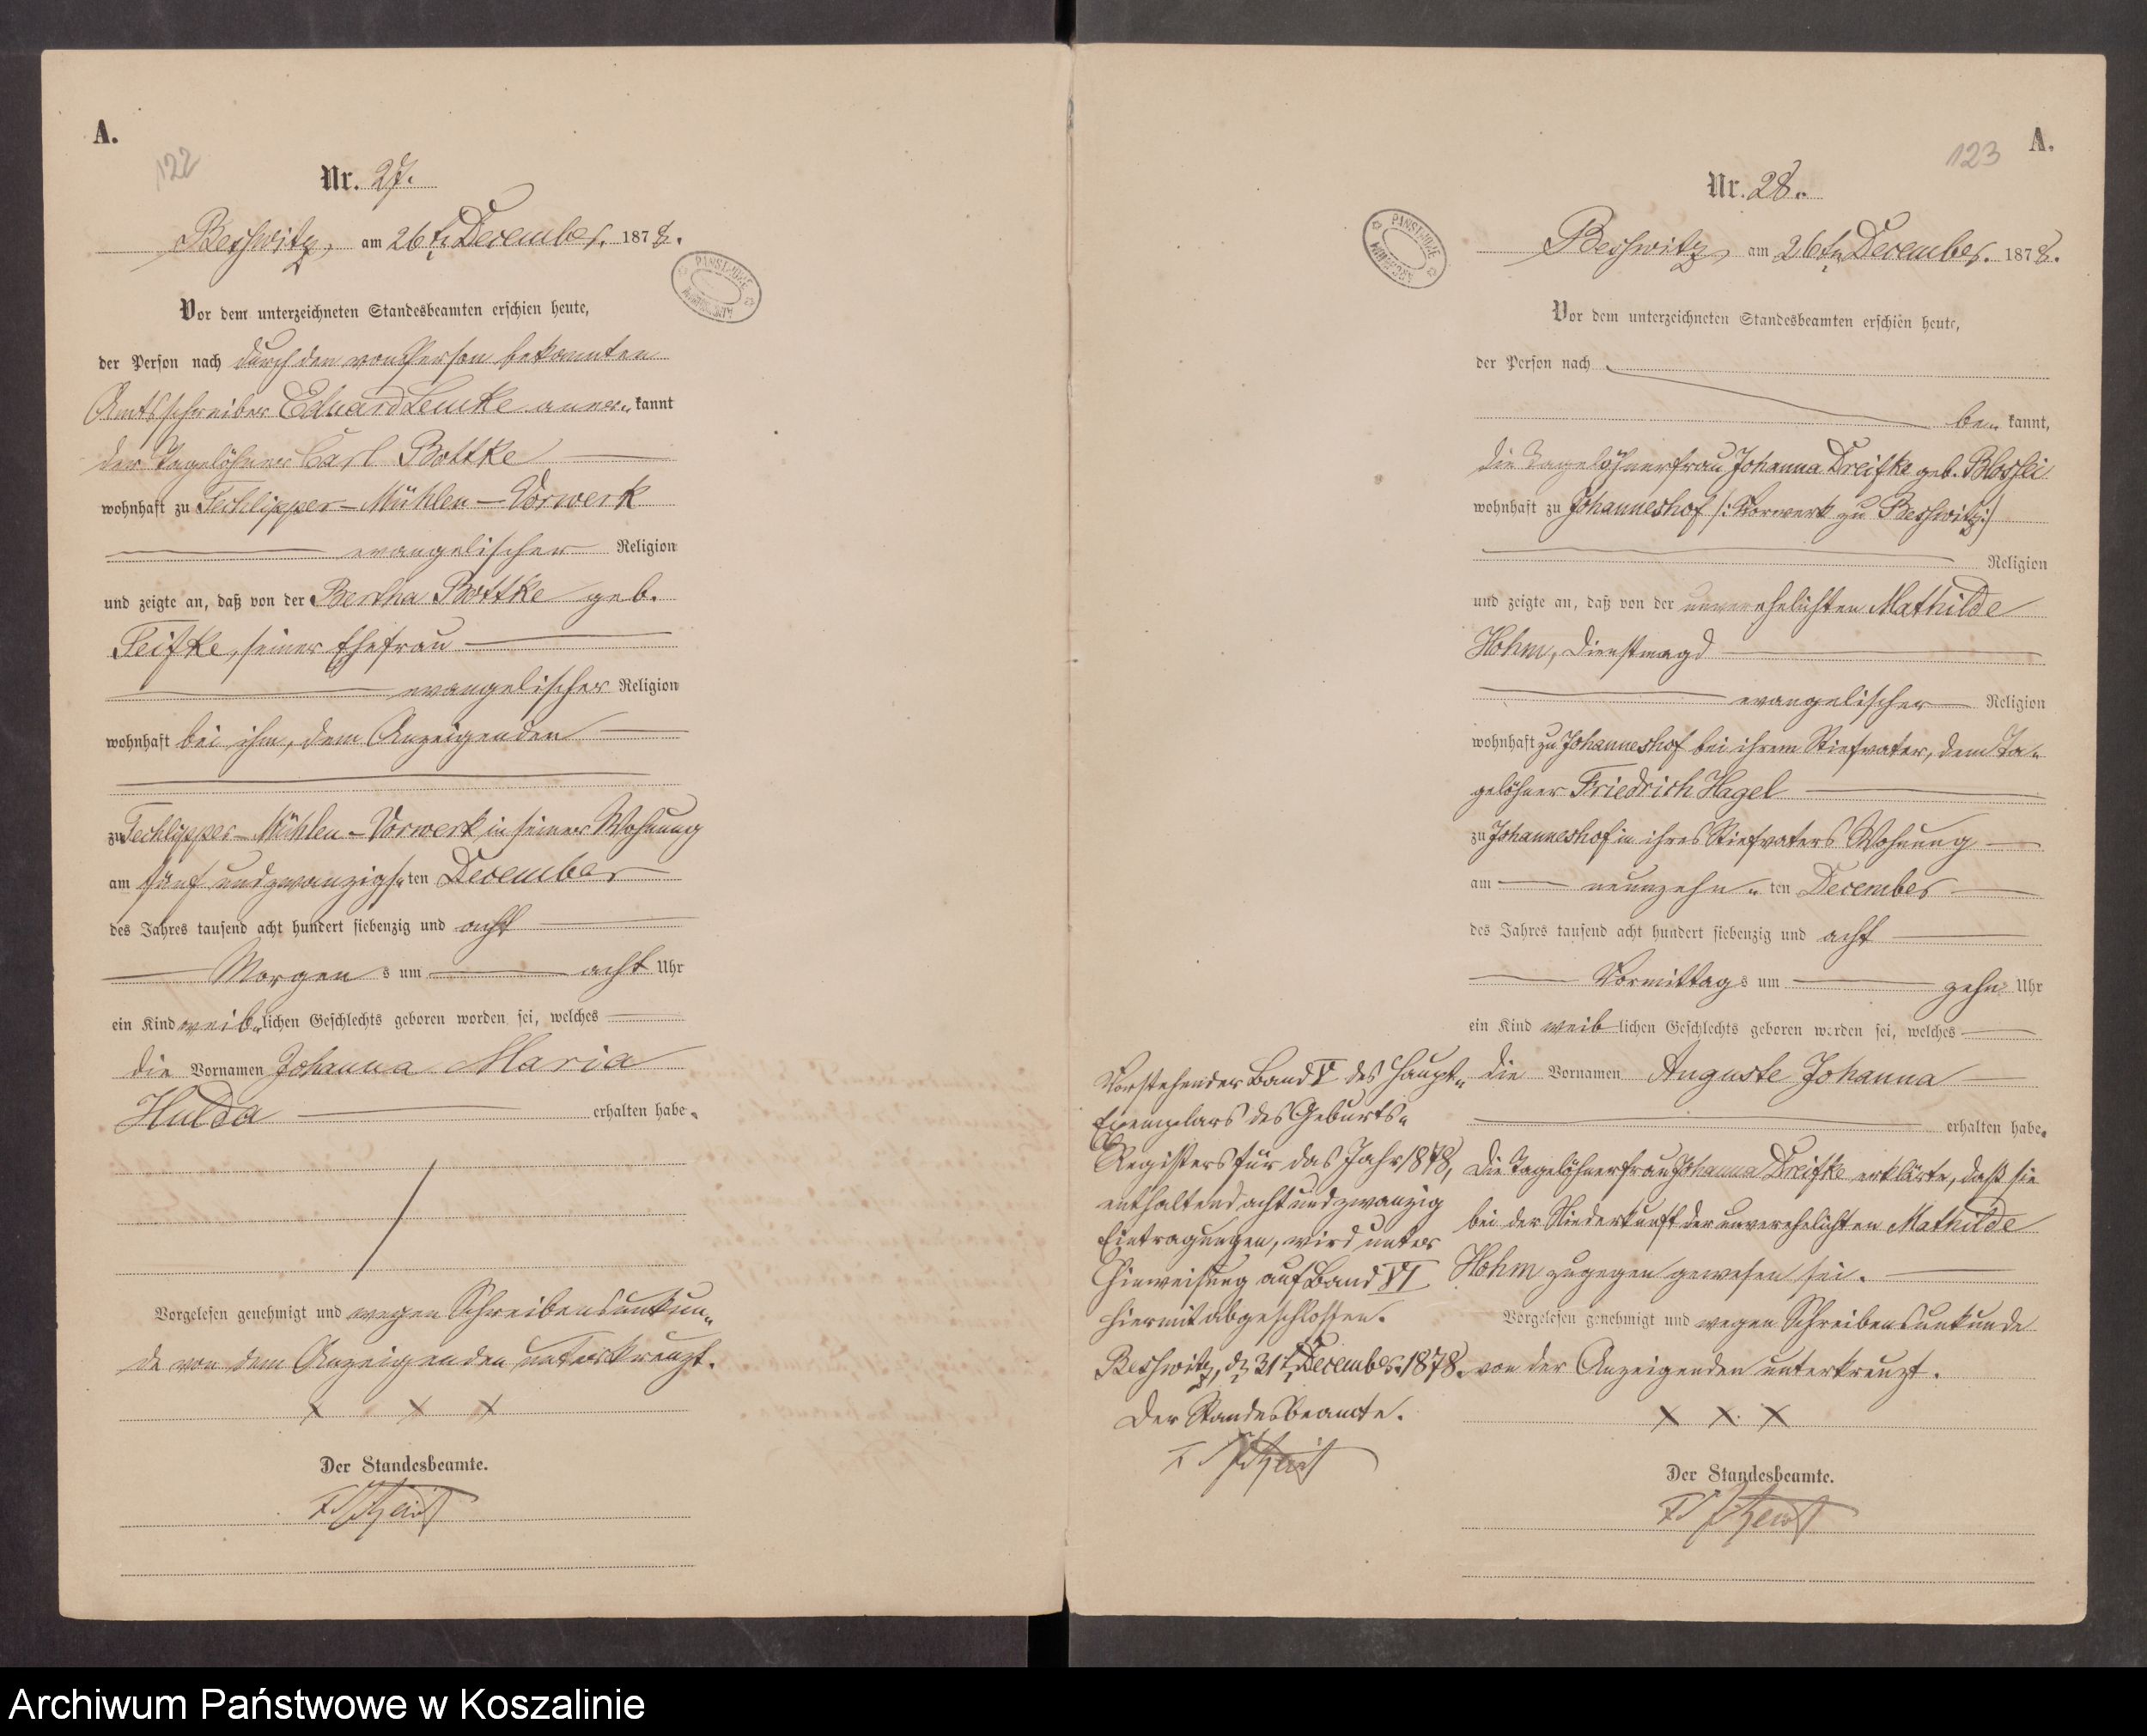 A.
122
Nr. 27.
Beßwitz, am 26ten December. 1878.
PAŃSTWOWE ARCHIWUM
Vor dem unterzeichneten Standesbeamten erschien heute,
der Person nach durch den von Person bekannten
Amtsschreiber Eduard Lemke aner„kannt
der Tagelöhner Carl Bottke
wohnhaft zu Techlipper-Mühlen-Vorwerk
evangelischer Religion
und zeigte an, daß von der Bertha Bottke geb.
Feifke, seiner Ehefrau
evangelischer Religion
wohnhaft bei ihm, dem Anzeigenden
zu Techlipper-Mühlen-Vorwerk in seiner Wohnung
am fünf und zwanzigs„ten December
des Jahres tausend acht hundert siebenzig und acht
Morgens um acht Uhr
ein Kind weib„lichen Geschlechts geboren worden sei, welches
die Vornamen Johanna Maria
Hulda erhalten habe.
Vorgelesen genehmigt und wegen Schreibensunkun„
de von dem Anzeigenden unterkreuzt.
X X X
Der Standesbeamte.
A.
123
Nr. 28.
Beßwitz, am 26ten December. 1878.
PAŃSTWOWE ARCHIWUM
Vor dem unterzeichneten Standesbeamten erschien heute,
der Person nach
be„kannt,
die Tagelöhnerfrau Johanna Dreifke geb.
wohnhaft zu Johanneshof /: Vorwerk zu Beßwitz :/
Religion
und zeigte an, daß von der unverehelichten Mathilde
Hohm, Dienstmagd
evangelischer Religion
wohnhaft zu Johanneshof bei ihrem Stiefvater, dem Ta„
gelöhner Friedrich Hagel
zu Johanneshof in ihres Stiefvaters Wohnung
am neunzehn„ten December
des Jahres tausend acht hundert siebenzig und acht
Vormittags um zehn Uhr
ein Kind weiblichen Geschlechts geboren worden sei, welches
die Vornamen Auguste Johanna
erhalten habe.
Die Tagelöhnerfrau Johanna Dreifke erklärte, daß sie
bei der Niederkunft der unverehelichten Mathilde
Hohm zugegen gewesen sei.
Vorgelesen genehmigt und wegen Schreibensunkunde
von der Anzeigenden unterkreuzt.
X X X
Der Standesbeamte.
Vorstehender Band V des Haupt„
Exemplars des Geburts„
Registers für das Jahr 1878,
enthaltend acht und zwanzig
Eintragungen, wird unter
Hinweisung auf Band VI
hiermit abgeschlossen.
Beßwitz, d. 31ten December 1878.
Der Standesbeamte.
Archiwum Państwowe w Koszalinie